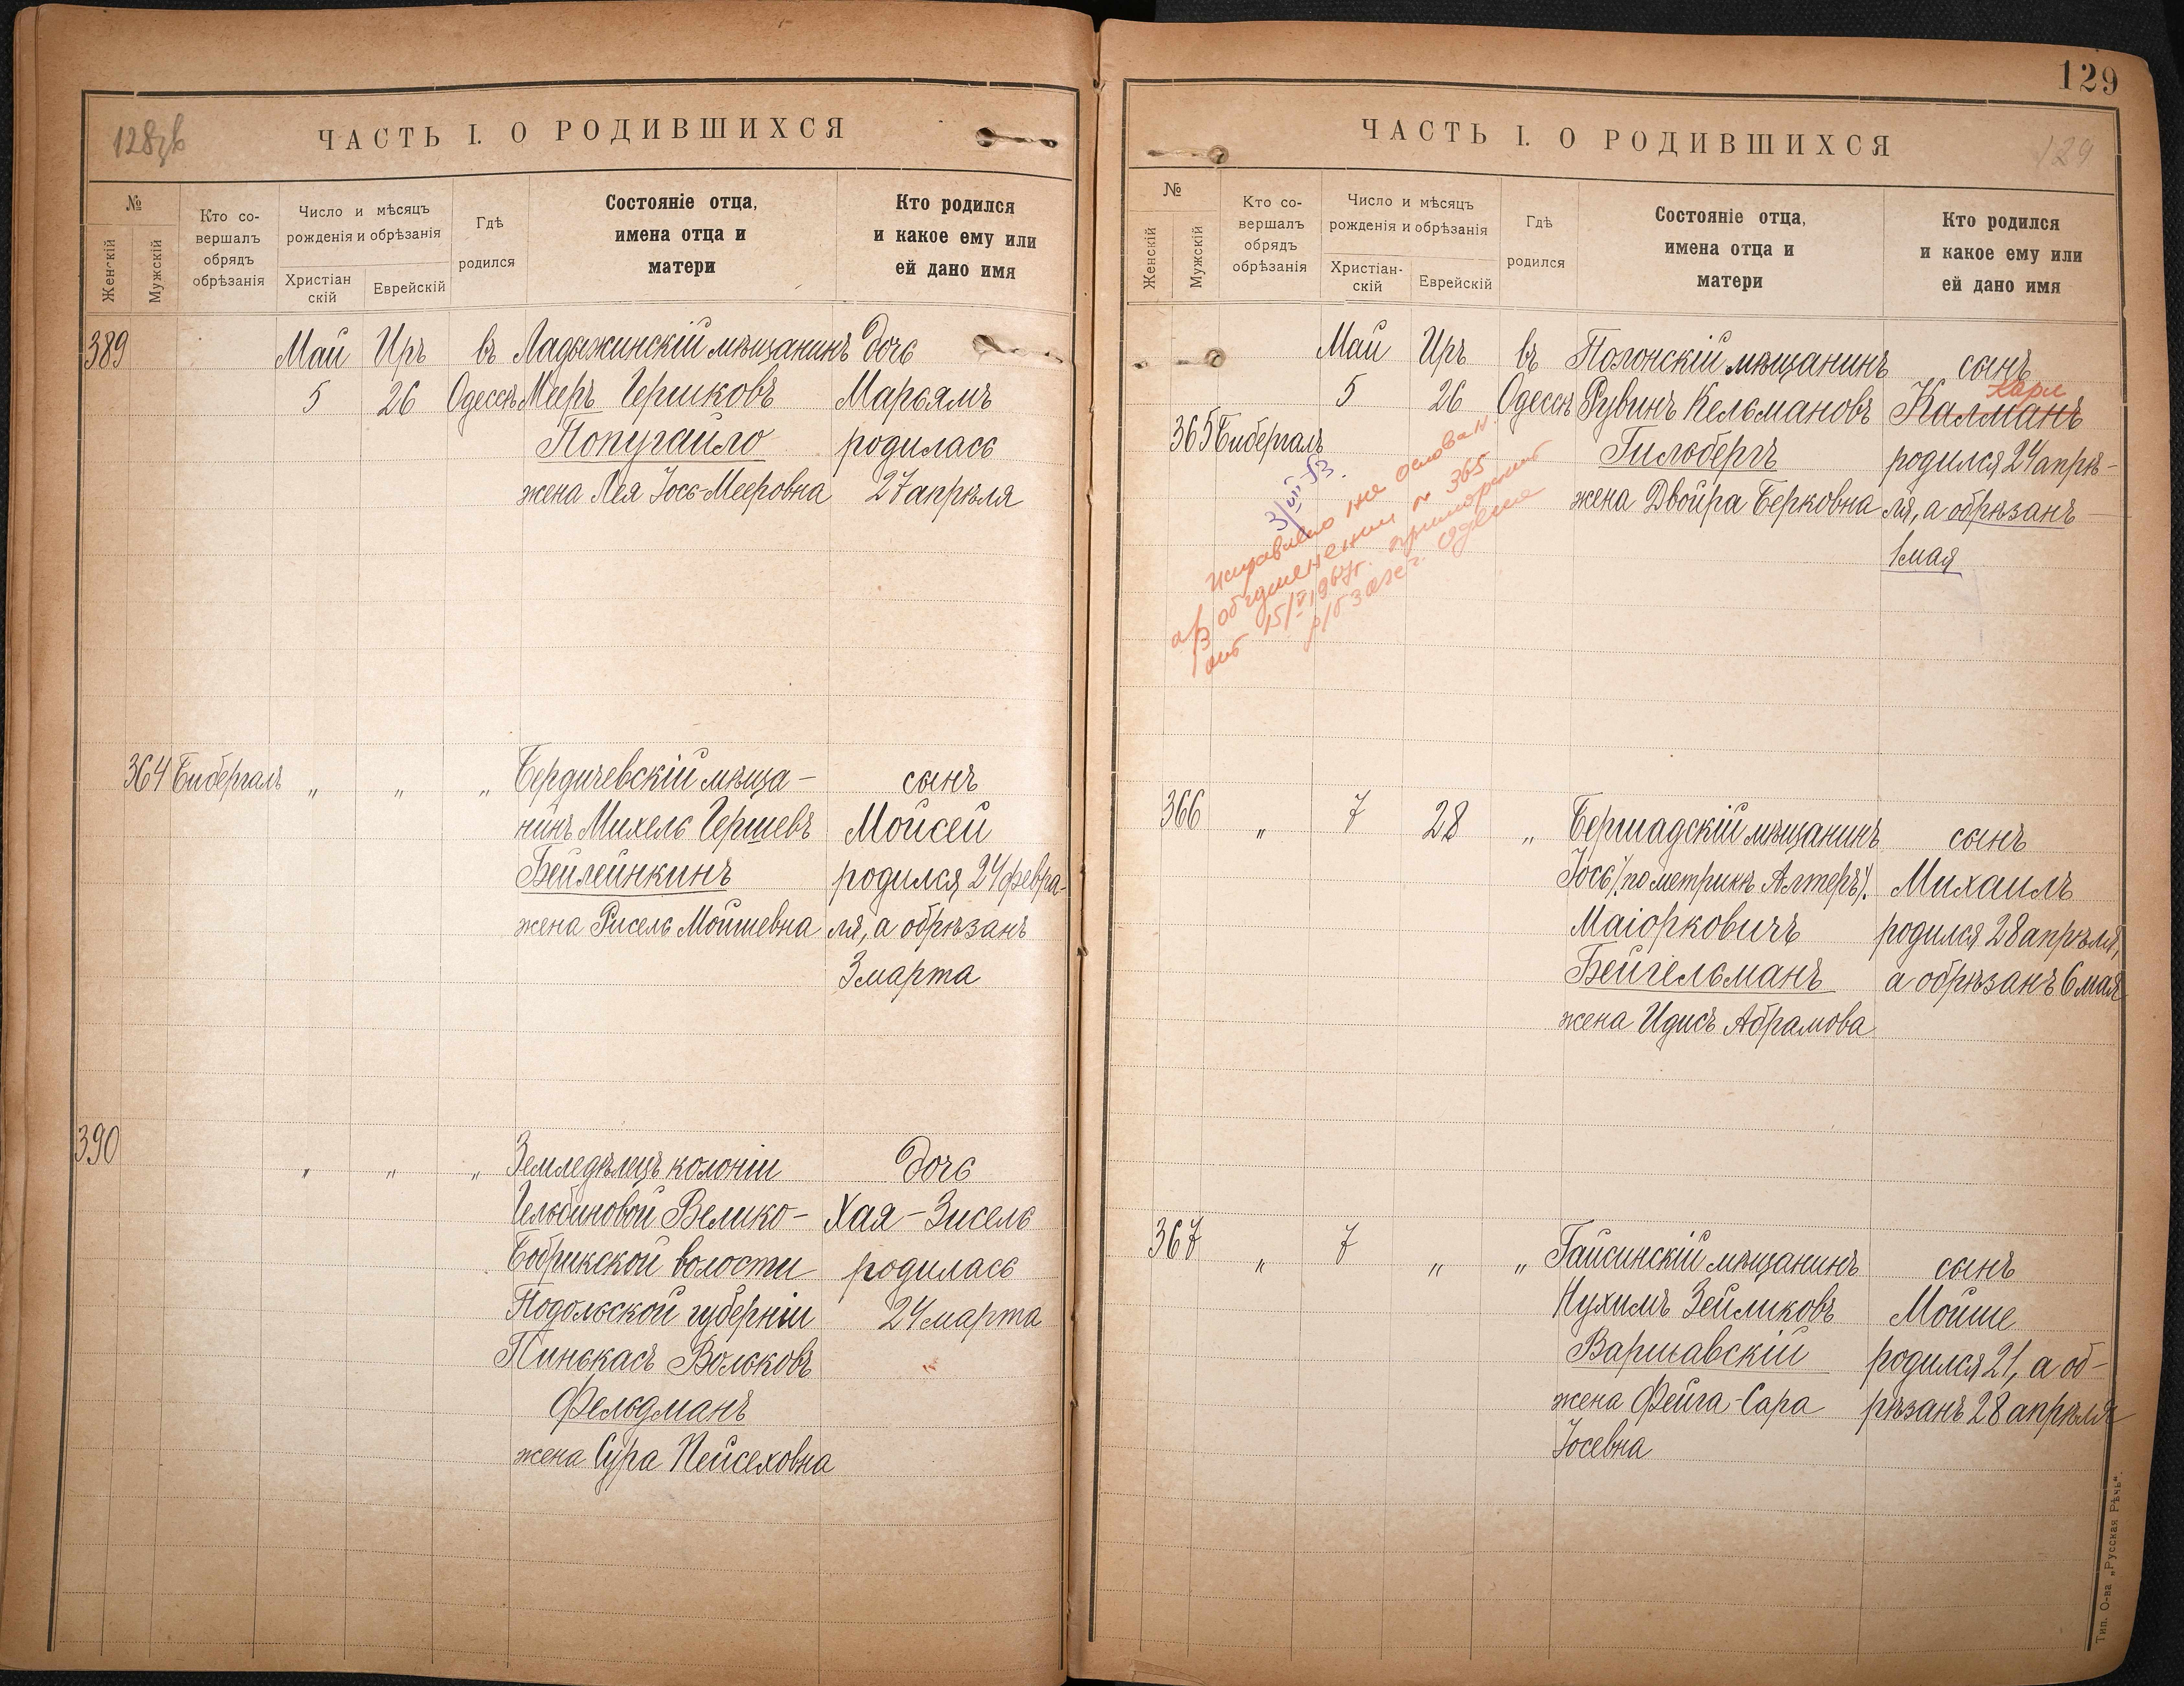 128 зв
ЧАСТЬ I. О РОДИВШИХСЯ
№
Женскій
Мужскій
Кто со-
вершалъ
обрядъ
обрѣзанія
Число и мѣсяцъ
рожденія и обрѣзанія
Христіан
скій
Еврейскій
Гдѣ
родился
Состояніе отца,
имена отца и
матери
Кто родился
и какое ему или
ей дано имя
389 Май Иръ въ Ладыжинскій мѣщанинъ дочь
5 26 Одессѣ Мееръ Гершковъ Марьямъ
Попугайло родилась
жена Лея Іось-Мееровна 27 апрѣля
364 Бибергалъ „ „ „ Бердичевскій мѣща- сынъ
нинъ Михель Гершевъ Мойсей
Бейлейнкинъ родился 24 февра-
жена Рисель Мойшевна ля, а обрѣзанъ
3 марта
390 „ „ „ Земледѣлецъ колоніи дочь
Гельбиновой Велико- Хая-Зисель
Бобрикской волости родилась
Подольской губерніи 24 марта
Пинькасъ Вольковъ
Фельдманъ
жена Сура Пейсеховна
129
ЧАСТЬ I. О РОДИВШИХСЯ
129
№
Женскій
Мужскій
Кто со-
вершалъ
обрядъ
обрѣзанія
Число и мѣсяцъ
рожденія и обрѣзанія
Христіан-
скій
Еврейскій
Гдѣ
родился
Состояніе отца,
имена отца и
матери
Кто родился
и какое ему или
ей дано имя
Май Иръ въ Полонскій мѣщанинъ сынъ
Карл
5 26 Одессѣ Рувинъ Кельмановъ Калманъ
365 Бибергалъ Гильбергъ родился 24 апрѣ-
жена Двойра Берковна ля, а обрѣзанъ
1 мая
3/VII 53.
исправлено на основан.
а/з об изменении № 365
от 15/V 1967г. приморский
р/б загс г. Одессы
366 „ 7 28 „ Бершадскій мѣщанинъ сынъ
Іось (по метрикѣ Алтеръ). Михаилъ
Маіорковичъ родился 28 апрѣля,
Бейгельманъ а обрѣзанъ 6 мая
жена Идисъ Абрамова
367 „ 7 „ „ Гайсинскій мѣщанинъ сынъ
Нухимъ Зейликовъ Мойше
Варшавскій родился 21, а об-
жена Фейга-Сара рѣзанъ 28 апрѣля
Іосевна
Тип. О-ва „Русская Рѣчь“.